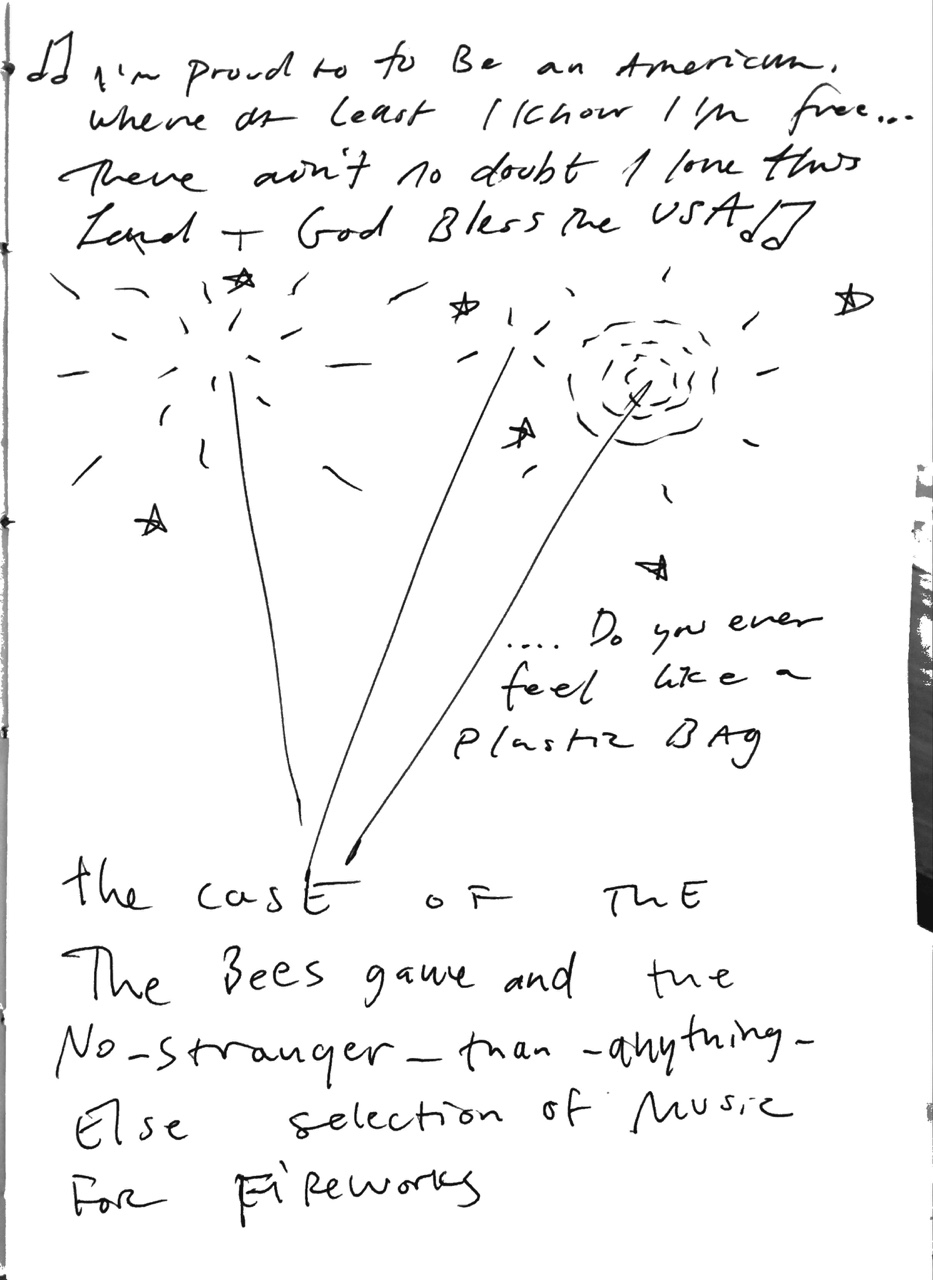 I'm Proud to to Be an American,
where at least I know I'm free...
There ain't no doubt I love this
Land + God Bless the USA
.... Do you ever
feel like a
Plastic BAg
the casE oF ThE
The Bees game and the
No-stranger-than-anything-
Else selection of Music
FoR FiReworks